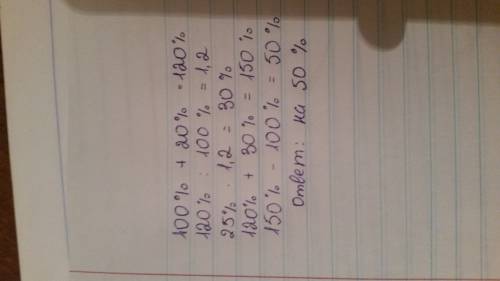 100% + 20% = 120%
120% : 100% = 1,2
25% · 1,2 = 30%
120% + 30% = 150%
150% - 100% = 50%
ответ: на 50%